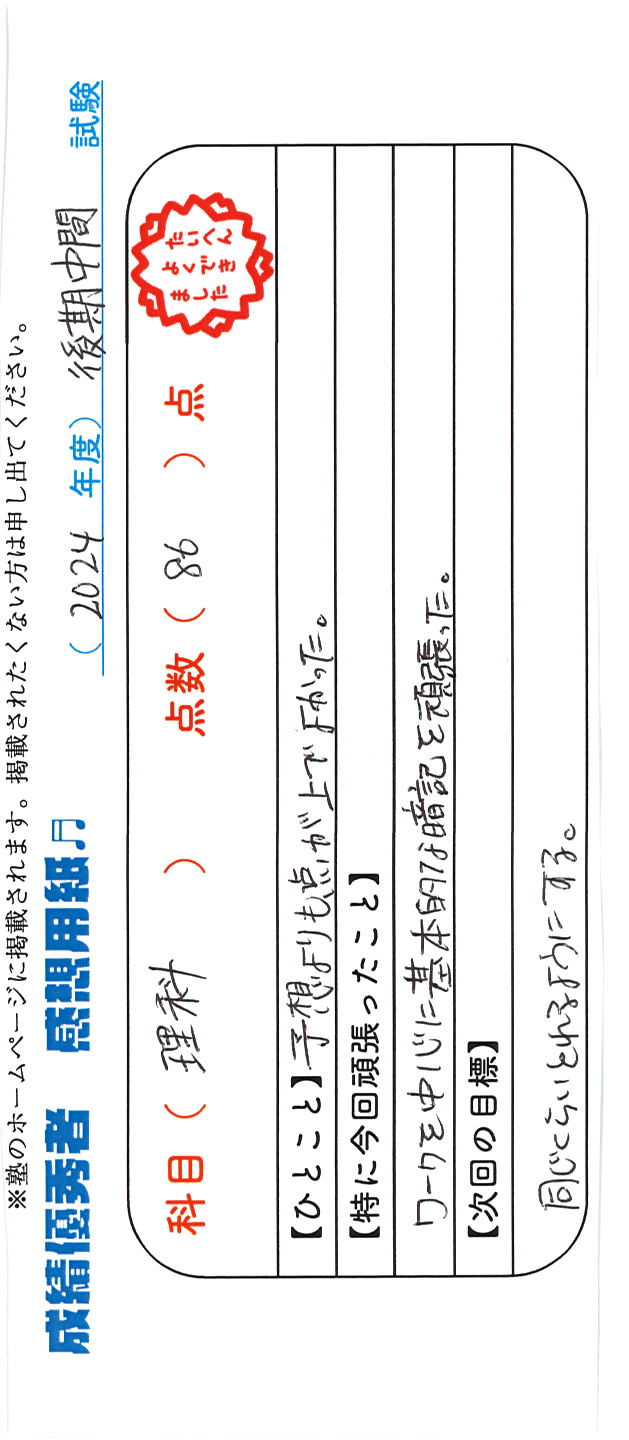 ※塾のホームページに掲載されます。掲載されたくない方は申し出てください。
成績優秀者 感想用紙♬ (2024 年度) 後期中間 試験
科目( 理科 ) 点数( 86 )点
たいへん
よくでき
ました
【ひとこと】予想よりも点が上でよかった。
【特に今回頑張ったこと】
ワークを中心に基本的な暗記を頑張った。
【次回の目標】
同じくらいとれるようにする。